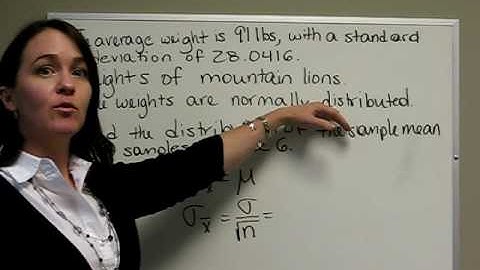 average weight is 91 lbs, with a standard
deviation of 28.0416.
weights of mountain lions.
weights are normally distributed.
the distribution of the sample mean
samples 6.
= μ
σx̄ = σ/√n =